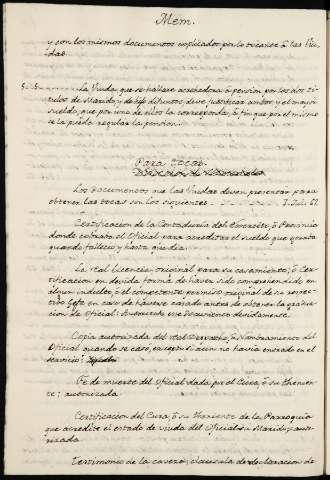 Mem.
y con los mismos documentos explicados por lo tocante á las Viu-
das.
La Viuda, que se hallare acrehedora á pension por los dos ti-
tulos de Marido, y de hijo difuntos, deve justificar ambos y el mayor
sueldo, que por uno de ellos la corresponda, á fin que por el mismo
se la pueda regular la pension.
Para tocas.
Los documentos que las Viudas deven presentar para
obtener las tocas son los siguientes. 7. Julio 67
Certificacion de la Contaduria del Exercito, ó Provincia
donde cobrava el Oficial para acreditar el sueldo que gozaba
quando fallecio y hasta que dia.
La real licencia original para su casamiento; ó Cer-
tificacion en devida forma de haver sido comprehendido en
algun indulto; ó el competente permiso original de su respec-
tivo Gefe en caso de haverse casado antes de obtener la gradua-
cion de Oficial: Autorizada ese Documento devidamente.
Copia autorizada del real Despacho, ó Nombramiento del
Oficial quando se caso, excepto si aun no havia entrado en el
servicio.
Fe de muerte del Oficial dada por el Cura, ó su Thenien-
te; autorizada
Certificacion del Cura, ó su Theniente de la Parroquia
que acredite el estado de viuda del Oficial su Marido; auto-
rizada
Testimonio de la cavera, clausula de declaracion de